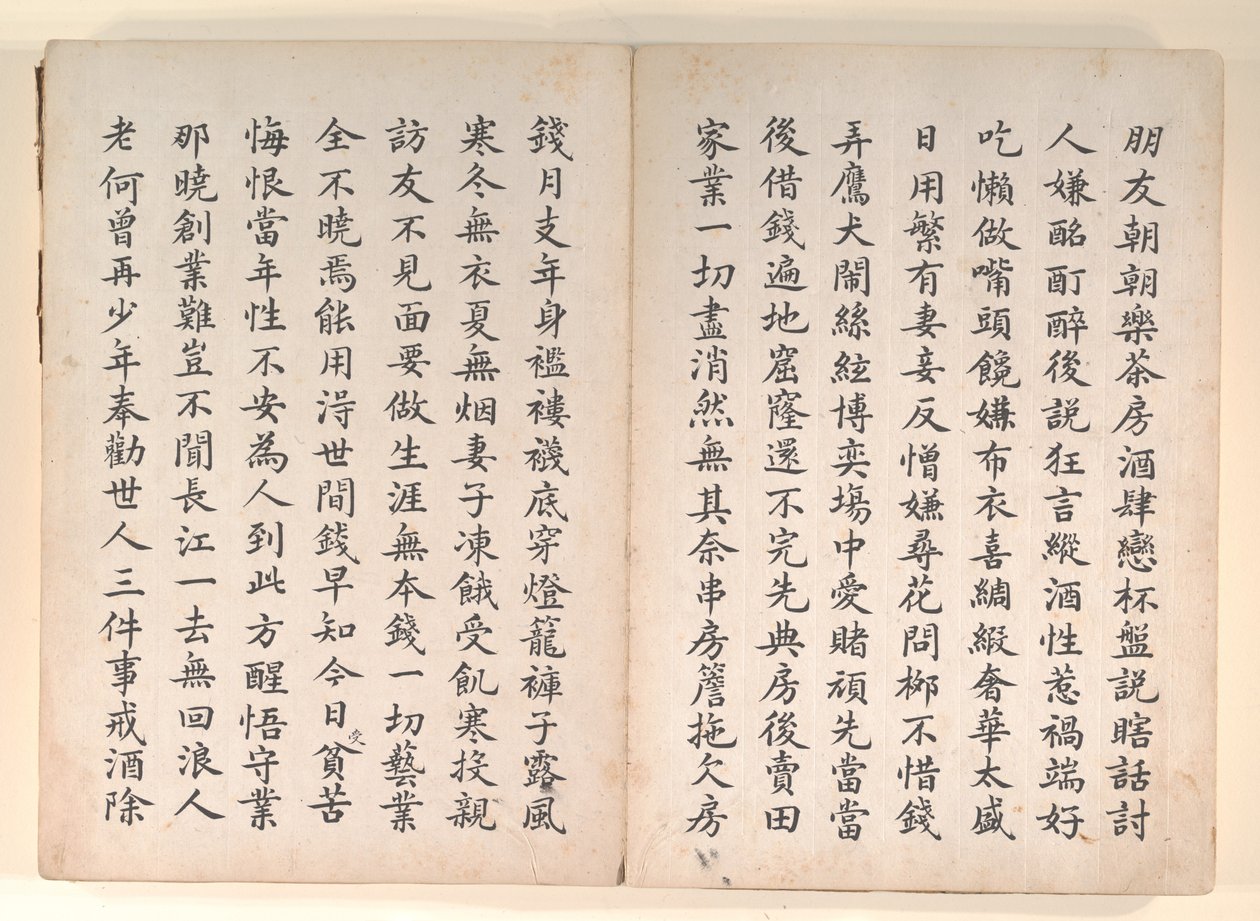 朋友朝朝樂茶房酒肆戀杯盤説瞎話討
人嫌酩酊醉後説狂言縱酒性惹禍端好
吃懶做嘴頭饞嫌布衣喜綢緞奢華太盛
日用繁有妻妾反憎嫌尋花問栁不惜錢
弄鷹犬鬧絲絃博奕塲中愛賭頑先當當
後借錢遍地窟窿還不完先典房後賣田
家業一切盡消然無其奈串房簷拖欠房
錢月支年身襤褸襪底穿燈籠褲子露風
寒冬無衣夏無烟妻子凍餓受飢寒投親
訪友不見面要做生涯無本錢一切藝業
全不曉焉能用淂世間錢早知今日受貧苦
悔恨當年性不安為人到此方醒悟守業
那曉創業難豈不聞長江一去無回浪人
老何曾再少年奉勸世人三件事戒酒除